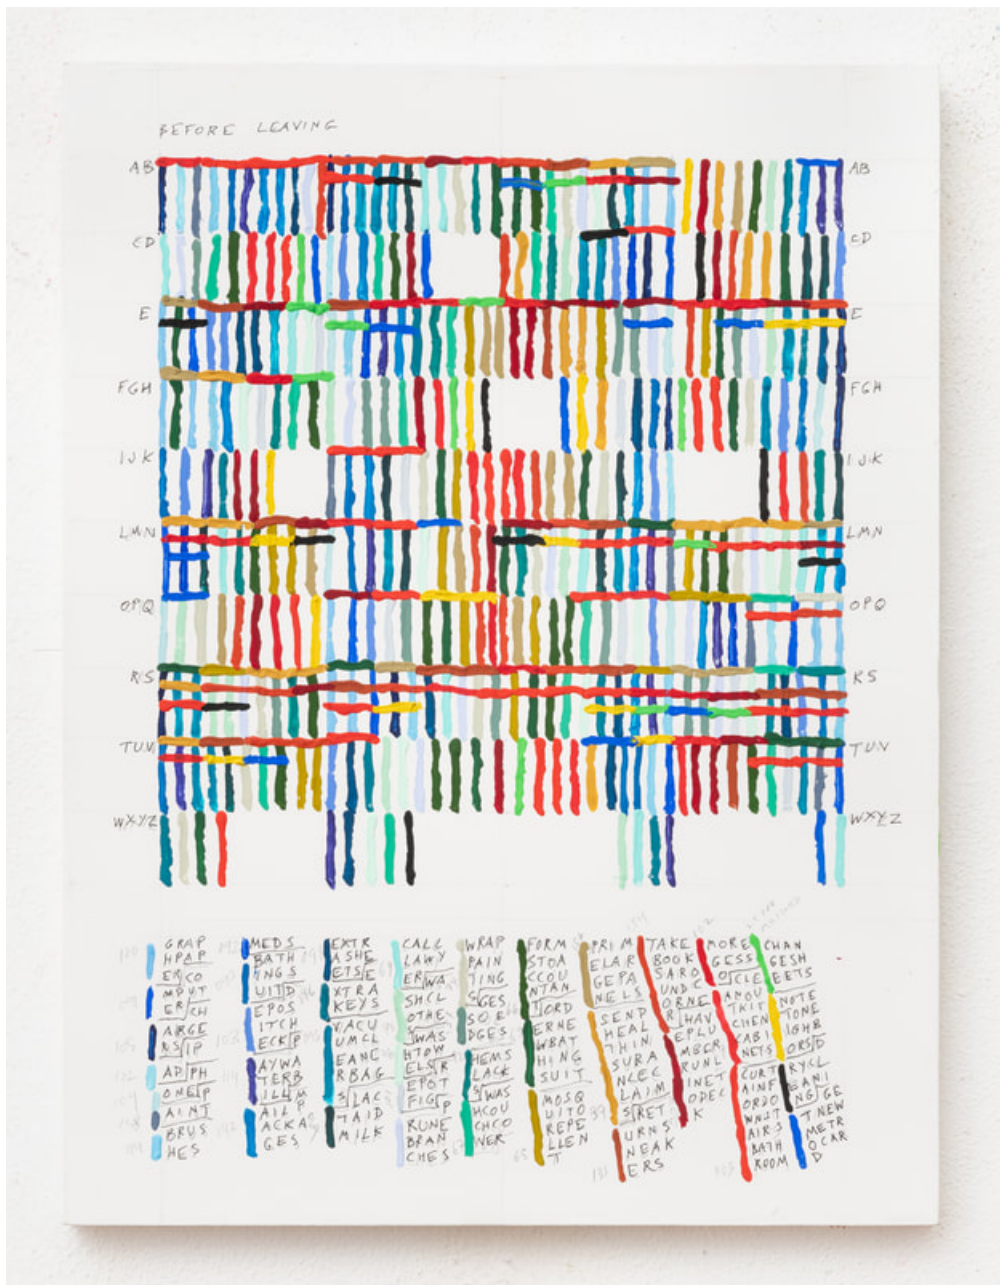 BEFORE LEAVING
AB AB
CD CD
E E
FGH FGH
IJK IJK
LMN LMN
OPQ OPQ
RS RS
TUV TUV
WXYZ WXYZ
GRAP
HPAP
ER CO
MPUT
ER CH
ARGE
RS IP
AD PH
ONE P
AINT
BRUS
HES
MEDS
BATH
INGS
UIT D
EPOS
ITCH
ECK P
AYWA
TERB
ILL M
AIL P
ACKA
GES
EXTR
ASHE
ETS E
XTRA
KEYS
VACU
UMCL
EANE
RBAG
S LAC
TAID
MILK
CALL
LAWY
ER WA
SHCL
OTHE
S WAS
HTOW
ELS R
EPOT
FIG P
RUNE
BRAN
CHES
WRAP
PAIN
TING
S GES
SOE
DGES
HEMS
LACK
S WAS
HCOU
CHCO
VER
FORM
STOA
CCOU
NTAN
T ORD
ERNE
WBAT
HING
SUIT
MOSQ
UITO
REPE
LLEN
T
PRIM
ELAR
GEPA
NELS
SEND
HEAL
THIN
SURA
NCEC
LAIM
S RET
URNS
NEAK
ERS
TAKE
BOOK
SARO
UNDC
ORNE
R HAV
EPLU
MBER
RUNL
INET
ODEC
K
MORE
GESS
O CLE
ANOU
TKIT
CHEN
CABI
NETS
CURT
AINF
ORDO
WNST
AIRS
BATH
ROOM
CHAN
GESH
EETS
NOTE
TONE
IGHB
ORS D
RYCL
EANI
NG GE
T NEW
METR
OCAR
D